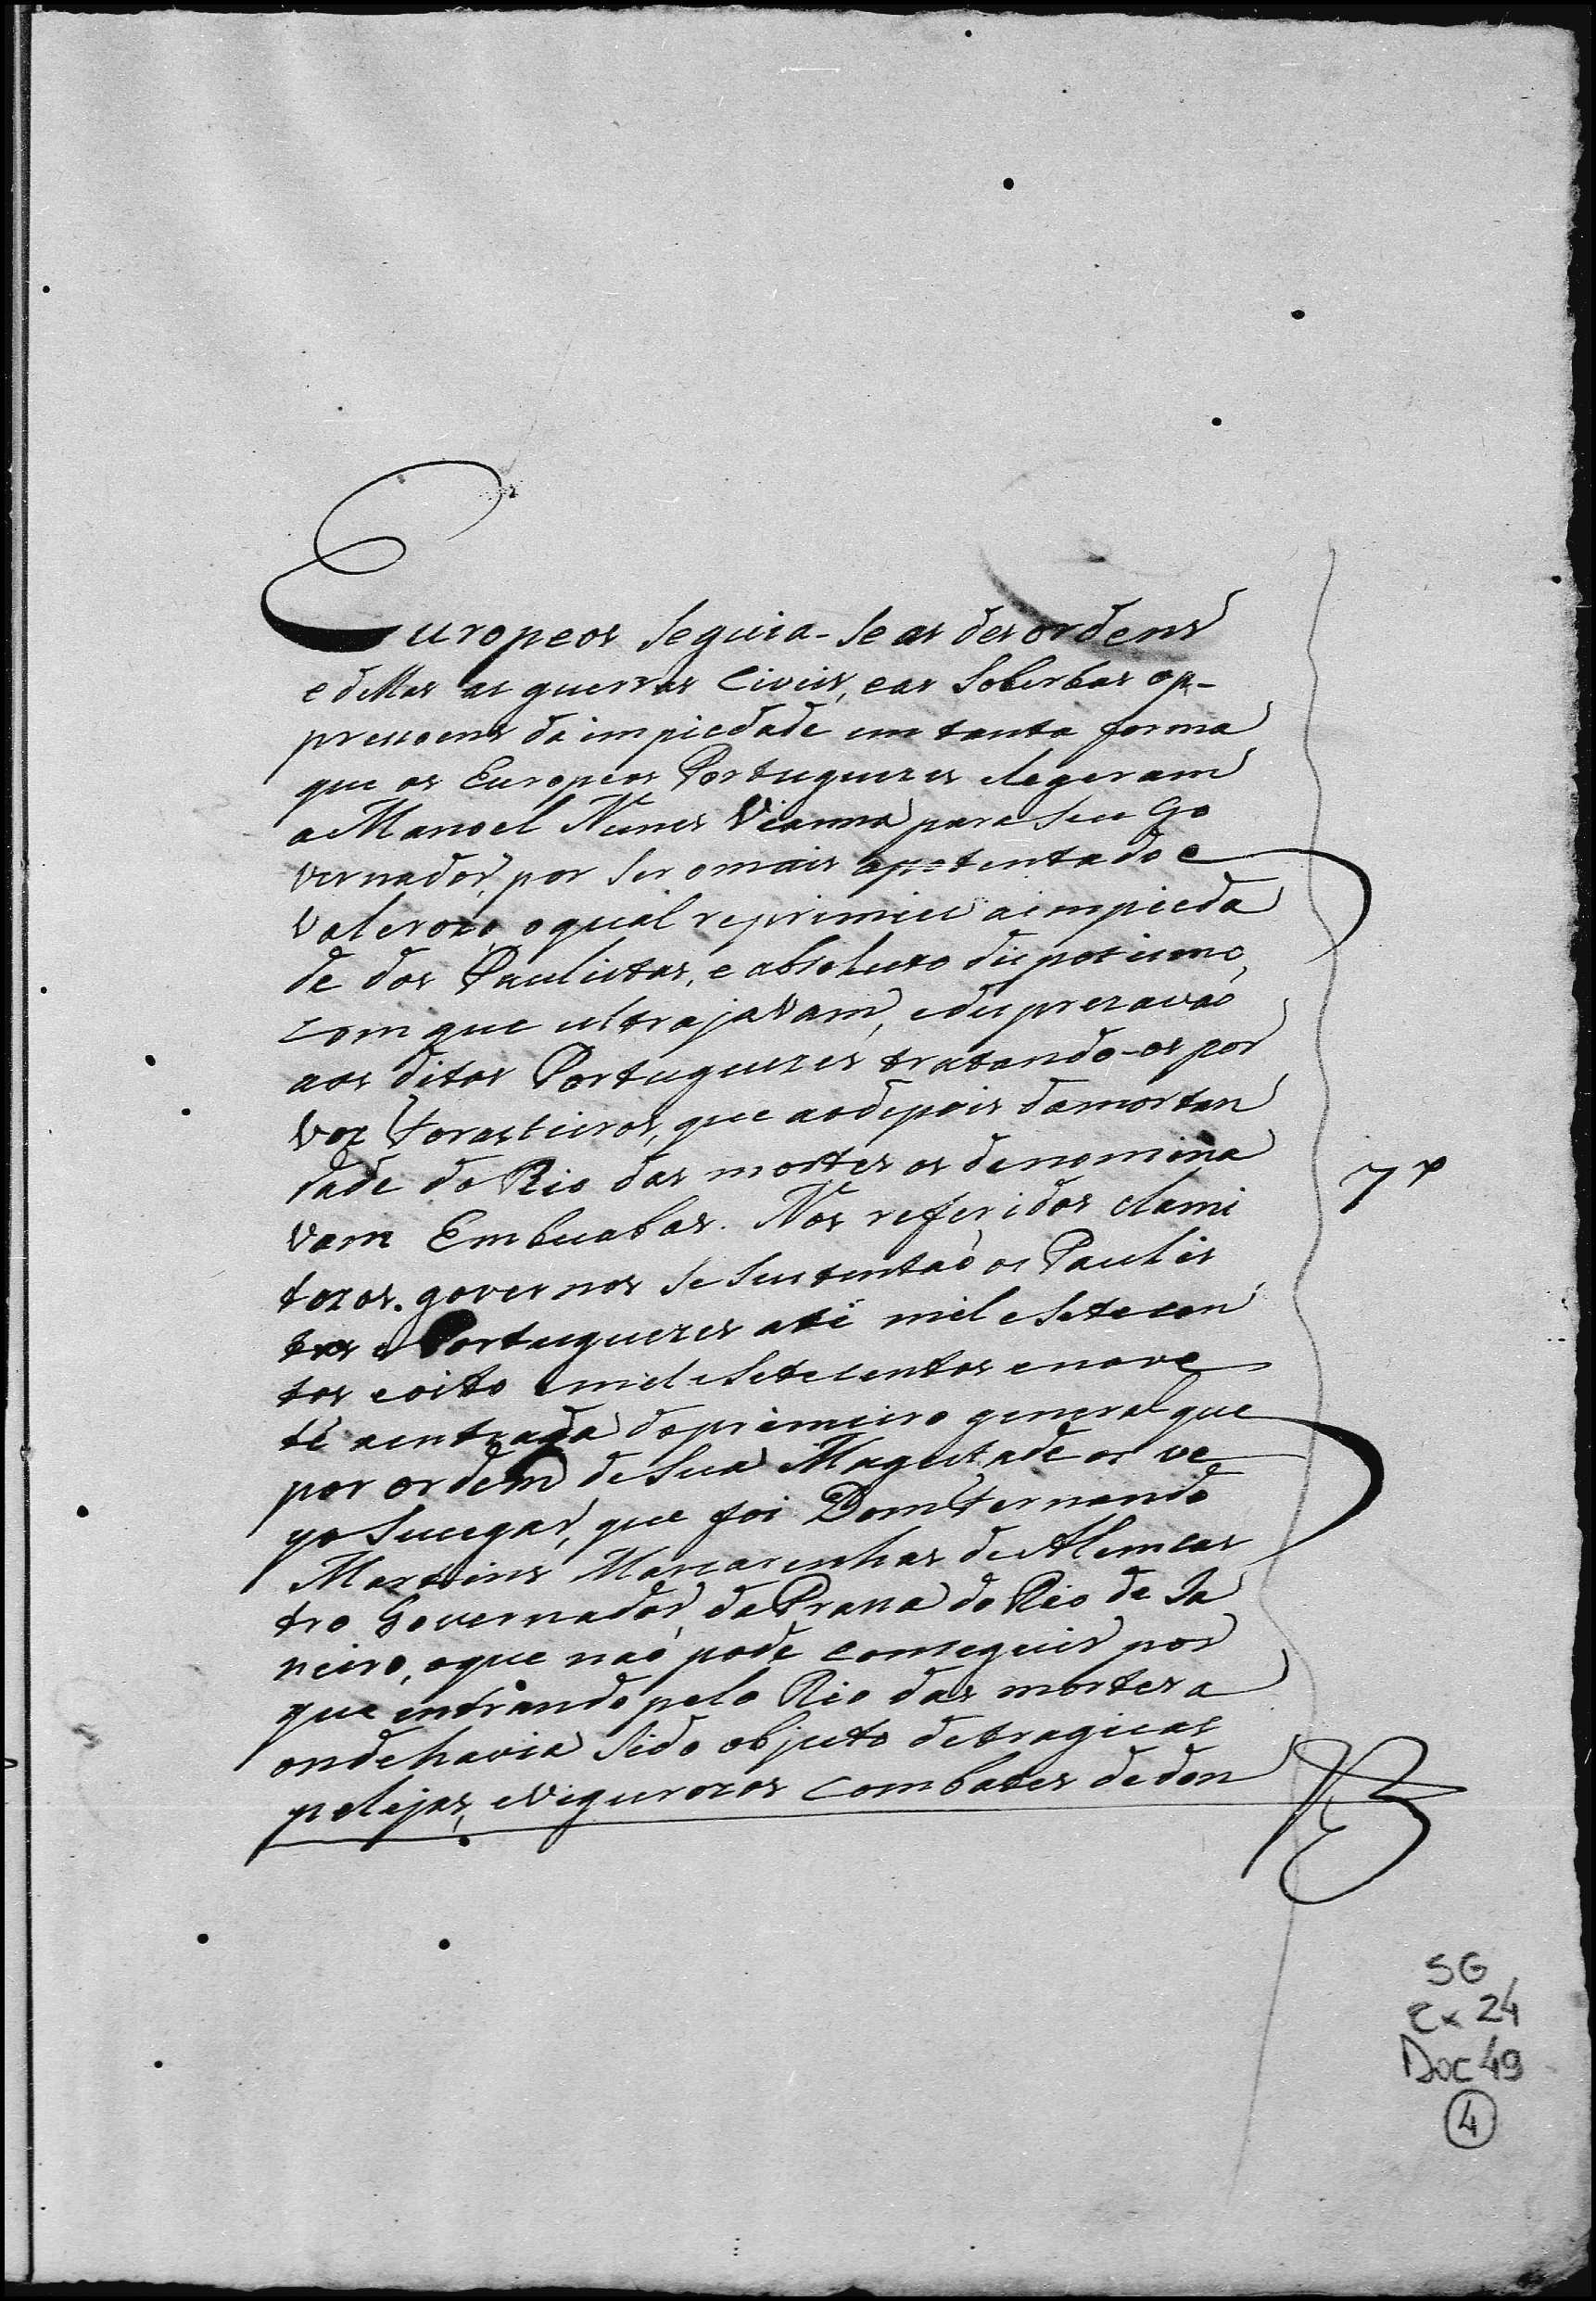 Europeos seguia-se as desordens
e dellas as guerras Civeis, eas Soberbas op-
pressoens da impiedade em tanta forma
que os Europeos Portuguezes elegeram
a Manoel Nunes Vianna para seu Go
vernador, por ser omais apotentado e
valerozo, oqual reprimiu aimpieda
de dos Paulistas, e absoluto dispotismo,
com que ultrajavam, edesprezavão
aos ditos Portuguezes tratando-os por
voz Forasteiros, que aodepois damortan
dade do Rio das mortes os denomina
vam Embuabas. Nos referidos clami
tozos. governos se sustentaõ os Paulis
tas e Portuguezes até mil e Setecen
tos eoito emil e Setecentos enove
té aentrada doprimeiro general que
por ordem de Sua Magestade os ve
yo Sucegar, que foi Dom Fernando
Martins Mascarenhas de Alencas
tro Governador da Prassa do Rio de Ja
neiro, oque naõ pode conseguir por
que entrando pelo Rio das mortes a
ondehavia Sido objecto detragicas
pelejas, evigurozos combates dedon
7ª
SG
Cx 24
Doc 49
4